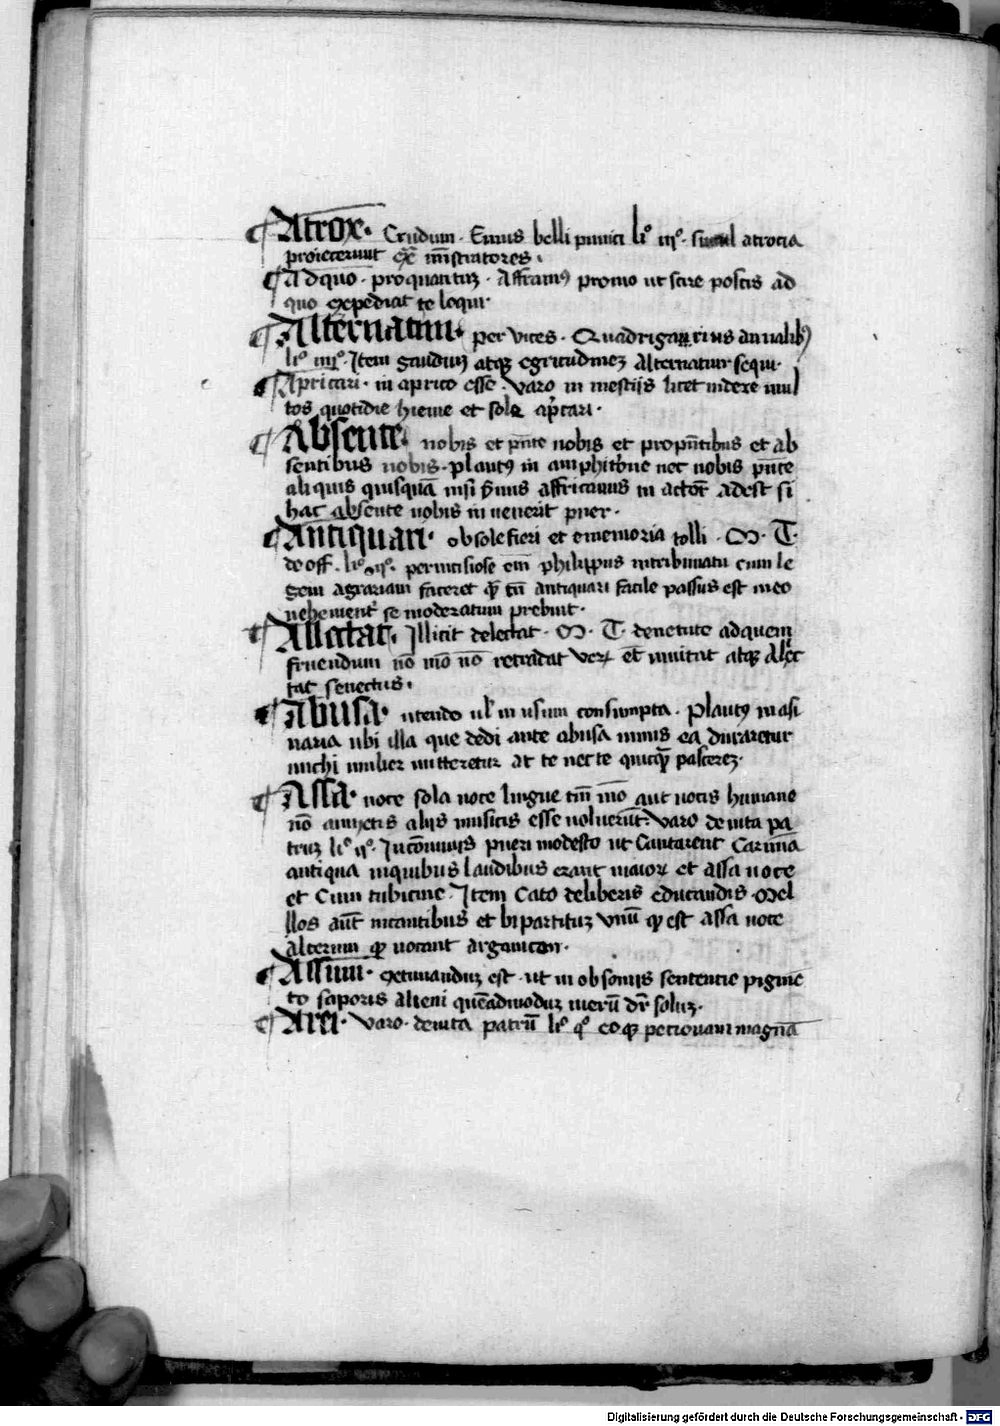 Atrox. Crudum. Enius belli punici li° iii°. simul atrocia
proiecerunt ex̄ mīstratores.
Adquo. proquantuʒ. Affraniꝰ promo ut scire possis ad
quo expediat te loqui.
Alternatim. per vices. Quadrigarius annalibꝰ
li° iiii°. Item gaudiuʒ atqꝫ egritudineʒ alternatur sequi.
Apricari. in aprico esse. Varo in mestijs licet videre mul
tos quotidie hieme et sole ap̄cari.
Absente nobis et p̄nte nobis et prop̄ntibus et ab
sentibus nobis. plautꝰ in amphitrione nec nobis p̄nte
aliquis quisquā nisi affricanus in adest si
hac absente nobis in venerit puer.
Antiquari. obsolefieri et ememoria tolli. M. T.
de off. li° ii°. perniciose em̄ philippus intribunatu cum le
gem agrariam faceret antiquari facile passus est in eo
vehement̓ se moderatum prebuit.
Allectat. Illicit delectat. M. T. denetute adquem
fruendum nō mō nō retradat Veꝝ et̄ invitat atqꝫ Allec
tat senectus.
Abusa. utendo ul̓ in usum consumpta. Plautꝰ in asi
naria ubi illa que dedi ante abusa nimis ea duraretur
michi mulier mitteretur at te nec te pascereʒ.
Assa. voce sola voce lingue tm̄ mō aut vocis humane
nō admixtis alijs musicis esse voluerūt. Varo de vita pa
truʒ li° ii°. Inconviuijs pueri modesto ut Cantarent Carmīa
antiqua inquibus laudibus erant maioꝝ et assa voce
et Cum tubicine. Item Cato deliberis educandis. Mel
llos aūt incantibus et bipartituʒ vnū qꝫ est assa voce
alterum qꝫ vocant organicon.
Assum. extimanduʒ est. ut in obsonijs sentencie pigmē
to saporis alieni quēadmoduʒ meru͂ dr̄ soluʒ.
Arci. Varo. devita patrū li° q° eoqꝫ petrouam magnā
Digitalisierung gefördert durch die Deutsche Forschungsgemeinschaft - DFG